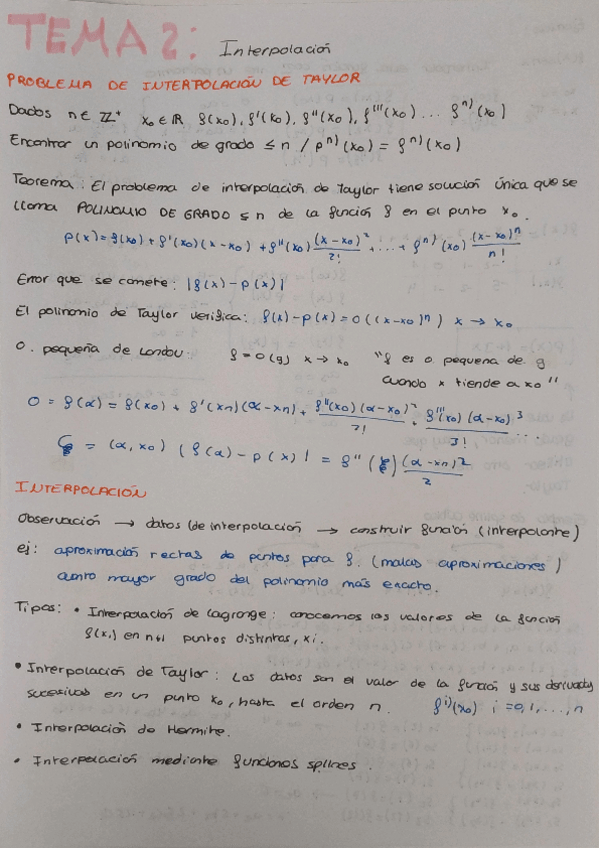 TEMA 2: Interpolación
PROBLEMA DE INTERPOLACIÓN DE TAYLOR
Dados n ∈ ℤ⁺ x₀ ∈ ℝ f(x₀), f'(x₀), f''(x₀), f'''(x₀) ... fⁿ⁾(x₀)
Encontrar un polinomio de grado ≤ n / pⁿ⁾(x₀) = fⁿ⁾(x₀)
Teorema: El problema de interpolación de Taylor tiene solución única que se
llama POLINOMIO DE GRADO ≤ n de la función f en el punto x₀.
p(x) = f(x₀) + f'(x₀)(x-x₀) + f''(x₀) (x-x₀)²/2! + ... + fⁿ⁾(x₀) (x-x₀)ⁿ/n!
Error que se comete: |f(x) - p(x)|
El polinomio de Taylor verifica: f(x) - p(x) = o((x-x₀)ⁿ) x → x₀
O. pequeña de Landau: f = o(g) x → x₀ "f es o pequeña de g
cuando x tiende a x₀"
0 = f(α) = f(x₀) + f'(xn)(α-xn) + f''(x₀)(α-x₀)²/2! + f'''(x₀)(α-x₀)³/3!
ξ = (α, x₀) (f(α) - p(x)| = f''(ξ) (α-xn)²/2
INTERPOLACIÓN
Observación → datos (de interpolación → construir función (interpolante)
ej: aproximación rectas de puntos para f. (malas aproximaciones)
cuanto mayor grado del polinomio más exacto.
Tipos: • Interpolación de Lagrange: conocemos los valores de la función
f(xi) en n+1 puntos distintas, xi.
• Interpolación de Taylor: Los datos son el valor de la función y sus derivadas
sucesivas en un punto x₀, hasta el orden n. fⁱ⁾(x₀) i = 0, 1, ..., n
• Interpolación de Hermite.
• Interpolación mediante funciones splines.